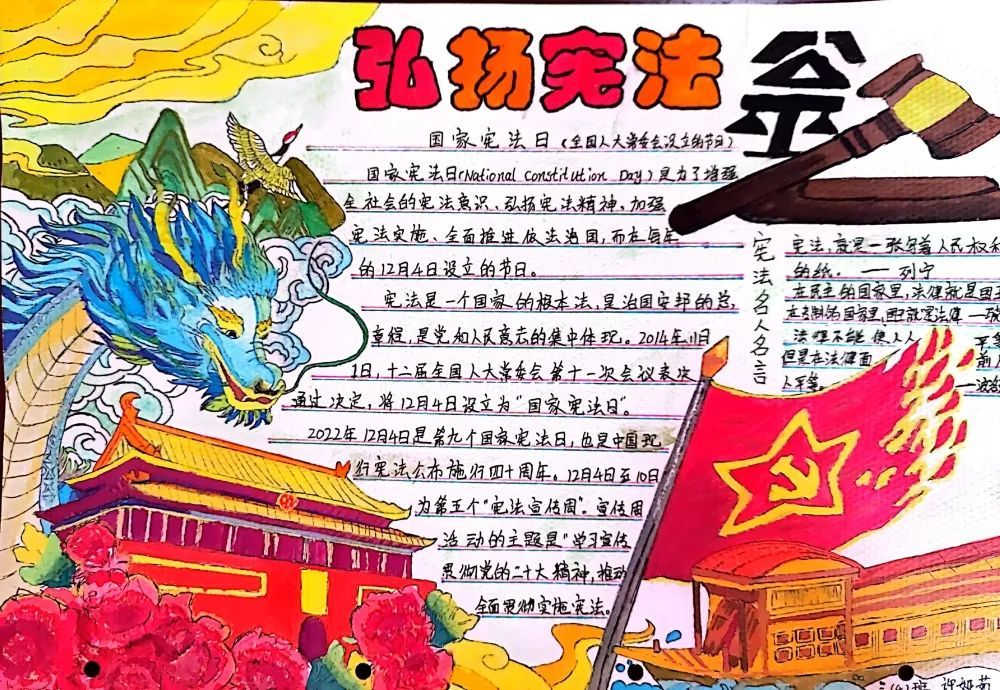 弘扬宪法
国家宪法日(全国人大常委会设立的节日)
国家宪法日(National Constitution Day)是为了增强
全社会的宪法意识、弘扬宪法精神、加强
宪法实施、全面推进依法治国,而在每年
的12月4日设立的节日。
宪法是一个国家的根本法,是治国安邦的总
章程,是党和人民意志的集中体现。2014年11月
1日,十二届全国人大常委会第十一次会议表决
通过决定,将12月4日设立为"国家宪法日"。
2022年12月4日是第九个国家宪法日,也是中国现
行宪法公布施行四十周年。12月4日至10日
为第五个"宪法宣传周"。宣传周
活动的主题是"学习宣传
贯彻党的二十大精神,推动
全面贯彻实施宪法。
宪法名人名言
宪法,就是一张写着人民权利
的纸。——列宁
在民主的国家里,法律就是国王
在专制的国家里,国王就是法律
法律不能使人人平等
但是在法律面前人
人平等。
班